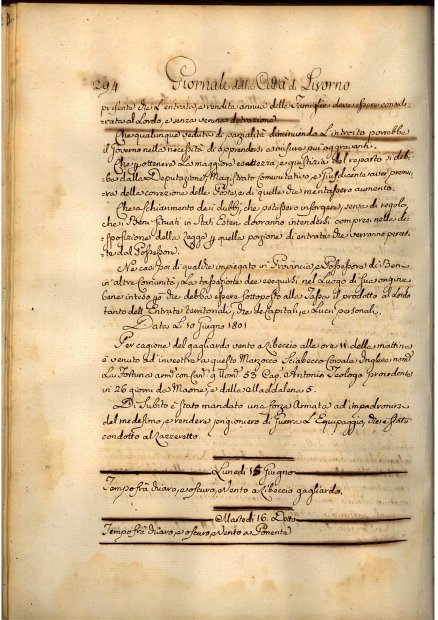 294 Giornale della Città di Livorno
presente che l'entrata, e rendita annua delle Famiglie deve essere conside-
rata al Lordo, e senza veruna detrazione
Che qualunque veduta di parzialità diminuendo l'introito porrebbe
il Governo nella necessità di apprendersi a misure più aggravanti.
Che p ottenere la maggiore esattezza, e giustizia del reparto si deb-
ba dalle Deputazioni, Magistrato Comunitativo, e Giusdicente
della correzione delle Poste, e di quelle che meritassero aumento.
Che a schiarimento dei dubbj, che potessero insorgere, serva di regola,
che i Beni situati in Stati Esteri dovranno intendersi compresi nella di-
sposizione della Legge p quella porzione di entrata che verranno perce-
tta dal Possessore.
Nei casi poi di qualche impiegato in Provincia, e Possessore di Beni
in altre Comunità, la tassazione dee eseguirsi nel Luogo di sua origine
bene inteso che debba essere sottoposto alla Tassa il prodotto al Lordo
tanto dell'Entrate territoriali, che de Capitali, e Lucri personali.
Data Li 10 Giugno 1801
Per cagione del gagliardo vento a Libeccio alle ore 11 della mattina
è venuto ad investire a questo Marzocco Sciabecco Corsale Inglese nom.
La Fortuna arm. con Can. 9 Uom. 53 Cap. Antonio Teologo procedente
in 26 giorni da Maone, e dalla Maddalena 5.
Di Subito è stato mandato una forza Armata ad impadronirsi
del medesimo, e rendere prigioniero di Guerra L'Equipaggio, che è stato
condotto al Lazzeretto.
Lunedì 15 Giugno
Tempo frà chiaro, e oscuro, e vento a Libeccio gagliardo.
Martedì 16 Detto
Tempo frà chiaro, e oscuro, e vento a Ponente